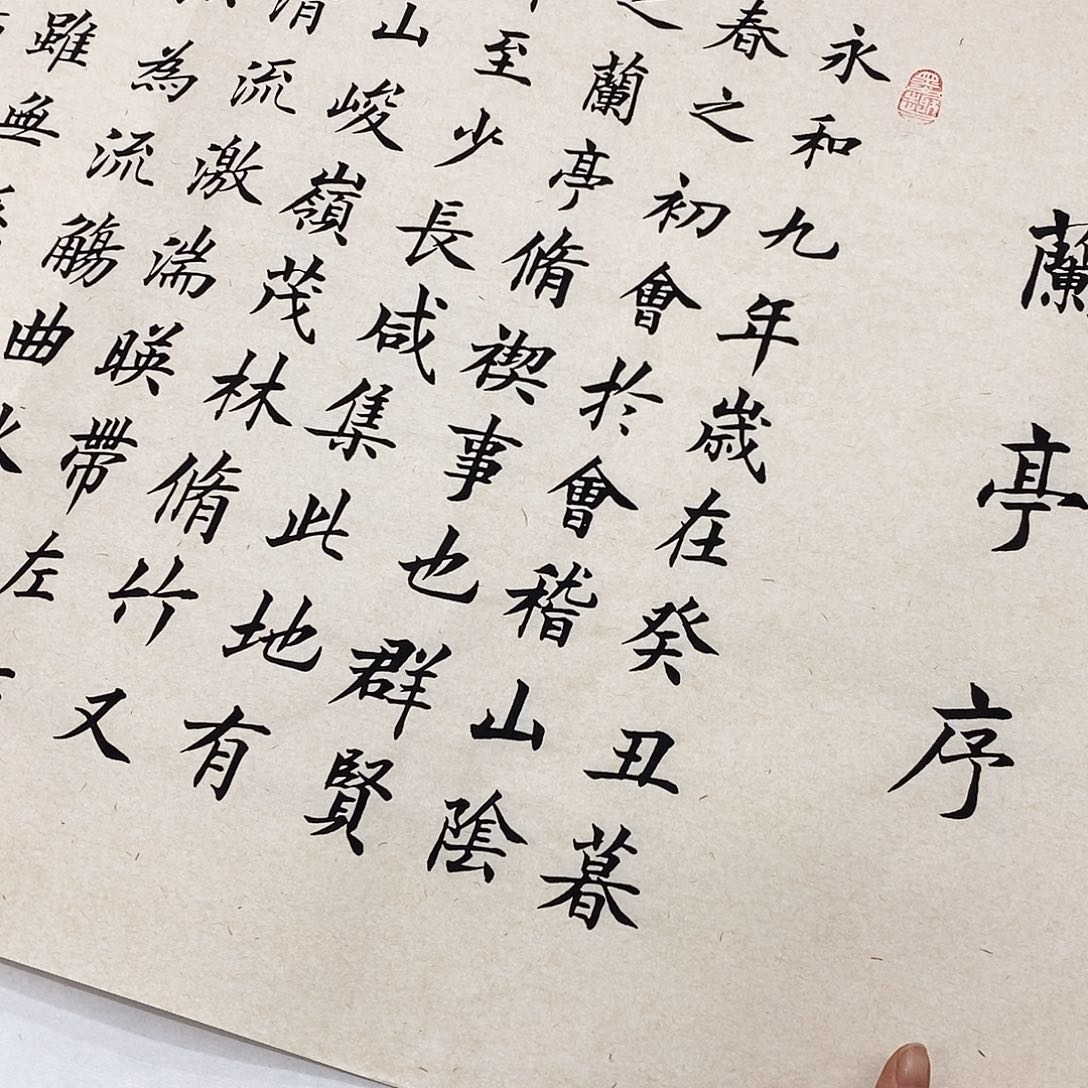 蘭亭序
永和九年歲在癸丑暮
春之初會於會稽山陰
之蘭亭脩禊事也群賢
至少長咸集此地有
山峻嶺茂林脩竹又
清流激湍暎帶左
為流觴曲水
雖無